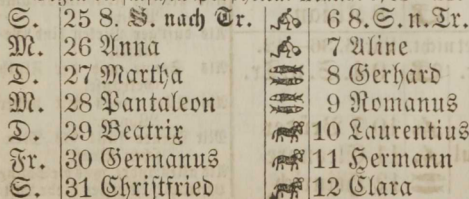 S. 25 8. S. nach Tr. 6 8. S. n. Tr.
M. 26 Anna 7 Aline
D. 27 Martha 8 Gerhard
M. 28 Pantaleon 9 Romanus
D. 29 Beatrix 10 Laurentius
Fr. 30 Germanus 11 Hermann
S. 31 Christfried 12 Clara